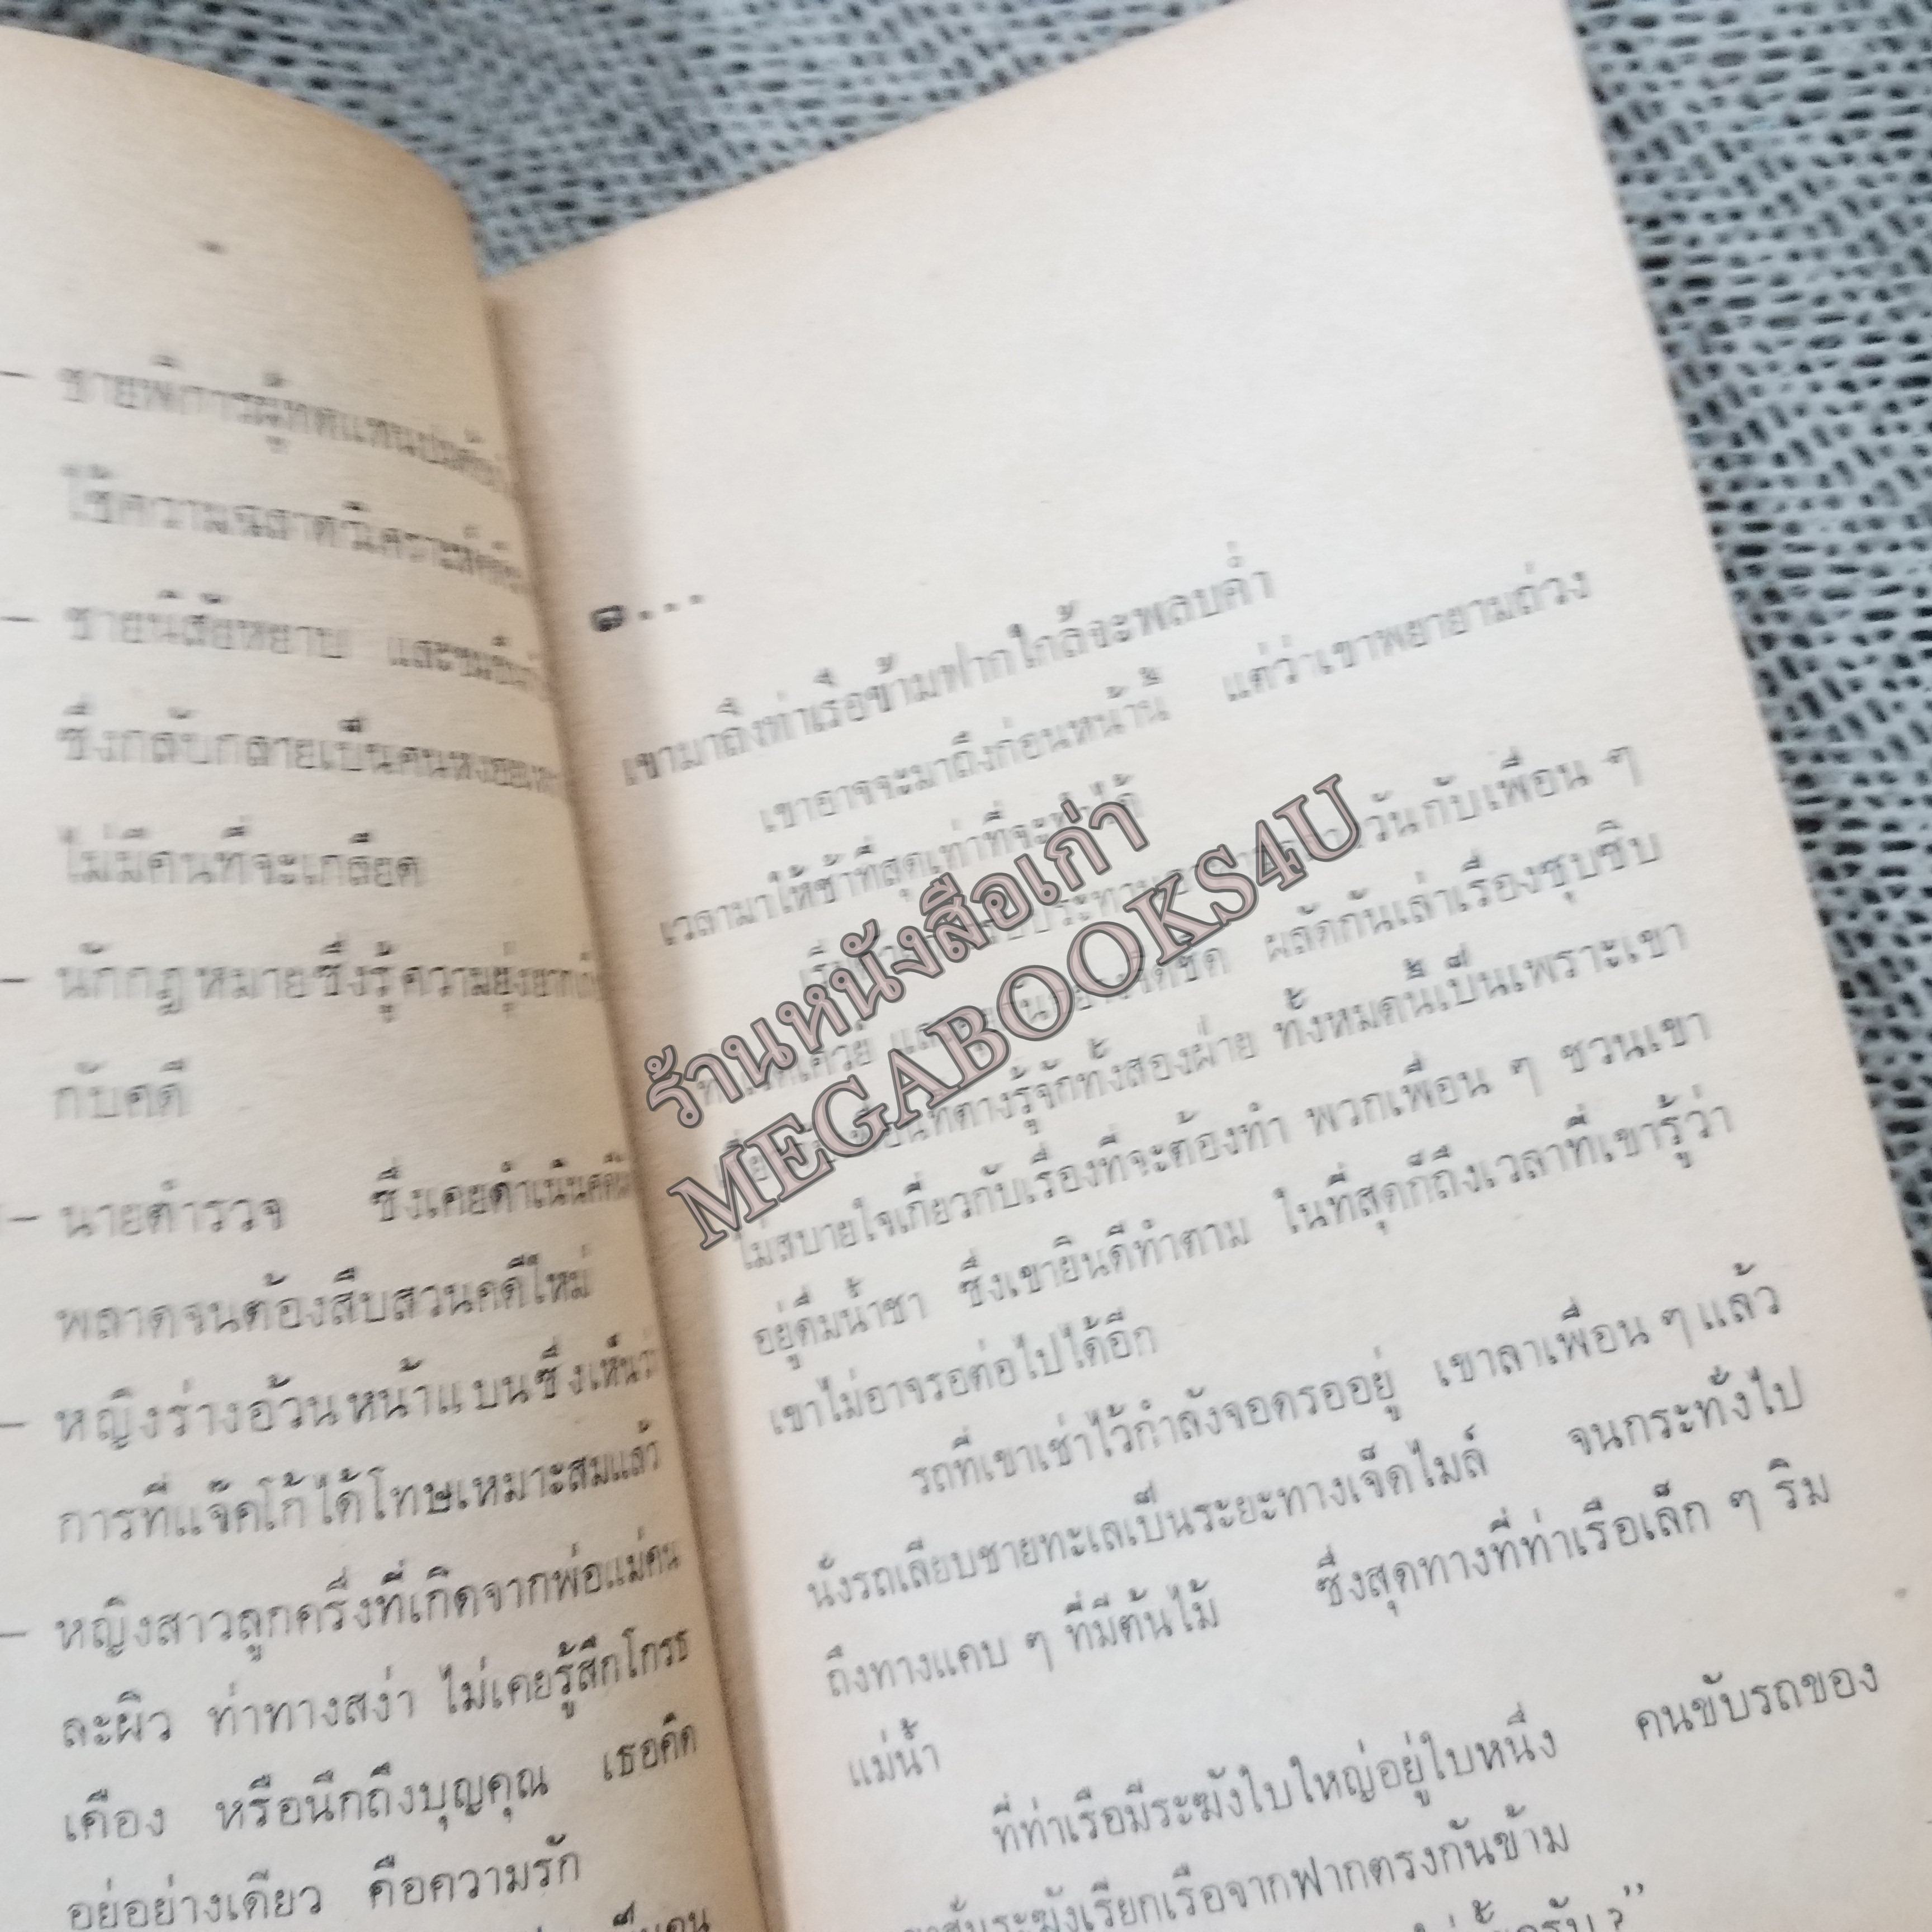 – ชายพิการผู้
ใช้ความฉลาดวิเคราะห์
– ชายนิสัยหยาบ และ
ซึ่งกลับกลายเป็นคน
ไม่มีคนที่จะเกลียด
– นักกฎหมายซึ่งรู้ความยุ่งยาก
กับคดี
– นายตำรวจ ซึ่งเคยดำเนินคดี
พลาดจนต้องสืบสวนคดีใหม่
– หญิงร่างอ้วนหน้าแบนซึ่งเห็นว่า
การที่แจ๊คโก้ได้โทษเหมาะสมแล้ว
– หญิงสาวลูกครึ่งที่เกิดจากพ่อแม่คน
ละผิว ท่าทางสง่า ไม่เคยรู้สึกโกรธ
เคือง หรือนึกถึงบุญคุณ เธอคิด
อยู่อย่างเดียว คือความรัก
๑...
เขามาถึงท่าเรือข้ามฟากใกล้จะพลบค่ำ
เขาอาจจะมาถึงก่อนหน้านี้ แต่ว่าเขาพยายามถ่วง
เวลามาให้ช้าที่สุดเท่าที่จะทำได้
วันกับเพื่อน ๆ
ผลัดกันเล่าเรื่องซุบซิบ
ที่ต่างรู้จักทั้งสองฝ่าย ทั้งหมดนี้เป็นเพราะเขา
ไม่สบายใจเกี่ยวกับเรื่องที่จะต้องทำ พวกเพื่อน ๆ ชวนเขา
อยู่ดื่มน้ำชา ซึ่งเขายินดีทำตาม ในที่สุดก็ถึงเวลาที่เขารู้ว่า
เขาไม่อาจรอต่อไปได้อีก
รถที่เขาเช่าไว้กำลังจอดรออยู่ เขาลาเพื่อน ๆ แล้ว
นั่งรถเลียบชายทะเลเป็นระยะทางเจ็ดไมล์ จนกระทั่งไป
ถึงทางแคบ ๆ ที่มีต้นไม้ ซึ่งสุดทางที่ท่าเรือเล็ก ๆ ริม
แม่น้ำ
ที่ท่าเรือมีระฆังใบใหญ่อยู่ใบหนึ่ง คนขับรถของ
เขาสั่นระฆังเรียกเรือจากฟากตรงกันข้าม
ร้านหนังสือเก่า
MEGABOOKS4U